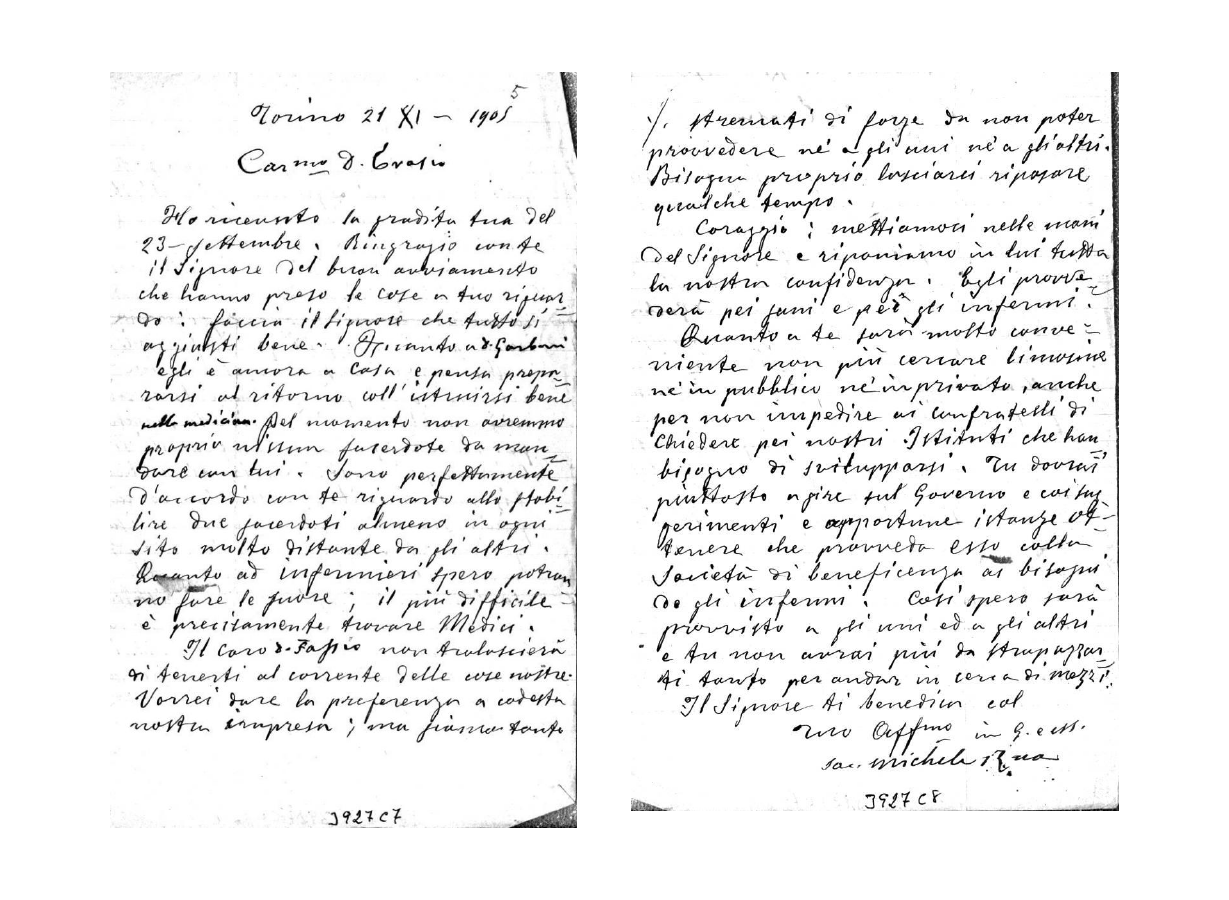 5
Torino 21 XI - 1905
Carmo D. Evasio
Ho ricevuto la gradita tua del
23-settembre. Ringrazio con te
il Signore del buon avviamento
che hanno preso le cose a tuo riguar=
do: faccia il Signore che tutto si
aggiusti bene. In quanto a d. Garbari
egli è ancora a casa e pensa prepa=
rarsi al ritorno coll'istruirsi bene
nella medicina. Pel momento non avremmo
proprio nissun sacerdote da man=
dare con lui. Sono perfettamente
d'accordo con te riguardo allo stabi=
lire due sacerdoti almeno in ogni
sito molto distante da gli altri.
Quanto ad infermieri spero potran
no fare le suore; il più difficile
è precisamente trovare Medici.
Il caro d. Fassio non tralascierà
di tenerti al corrente delle cose nostre.
Vorrei dare la preferenza a codesta
nostra impresa; ma siamo tanto
J927C7
/. stremati di forze da non poter
provvedere nè a gli uni nè a gli altri.
Bisogna proprio lasciarci riposare
qualche tempo.
Coraggio: mettiamoci nelle mani
del Signore e riponiamo in lui tutta
la nostra confidenza. Egli provve=
derà pei sani e per gli infermi.
Quanto a te sarà molto conve=
niente non più cercare limosine
nè in pubblico nè in privato, anche
per non impedire ai confratelli di
chiedere pei nostri Istituti che han
bisogno di svilupparsi. Tu dovrai
piuttosto agire sul Governo e coi sug
gerimenti e apportune istanze ot=
tenere che provveda esso colla
Società di beneficenza ai bisogni
de gli infermi. Così spero sarà
provvisto a gli uni ed a gli altri
e tu non avrai più da strapazzar
ti tanto per andar in cerca di mezzi.
Il Signore ti benedica col
Tuo Affmo in G. e M.
Sac. Michele Rua
J927C8